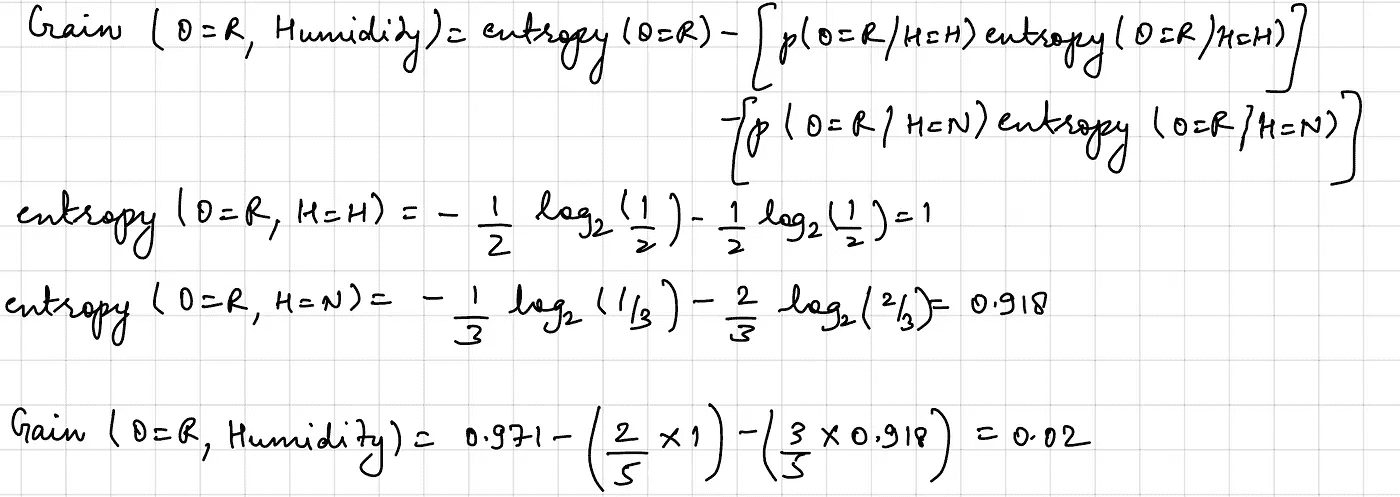 Gain (O=R, Humidity) = entropy (O=R) - [p(O=R/H=H) entropy (O=R/H=H)]
-[p (O=R/H=N) entropy (O=R/H=N)]
entropy (O=R, H=H) = - 1/2 log₂ (1/2) - 1/2 log₂ (1/2) = 1
entropy (O=R, H=N) = - 1/3 log₂ (1/3) - 2/3 log₂ (2/3) = 0.918
Gain (O=R, Humidity) = 0.971 - (2/5 × 1) - (3/5 × 0.918) = 0.02